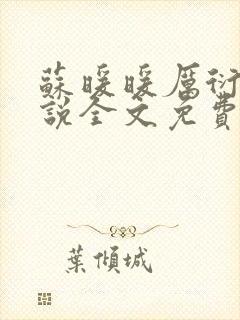 蘇暖暖厲衍
說全文免費
葉傾城